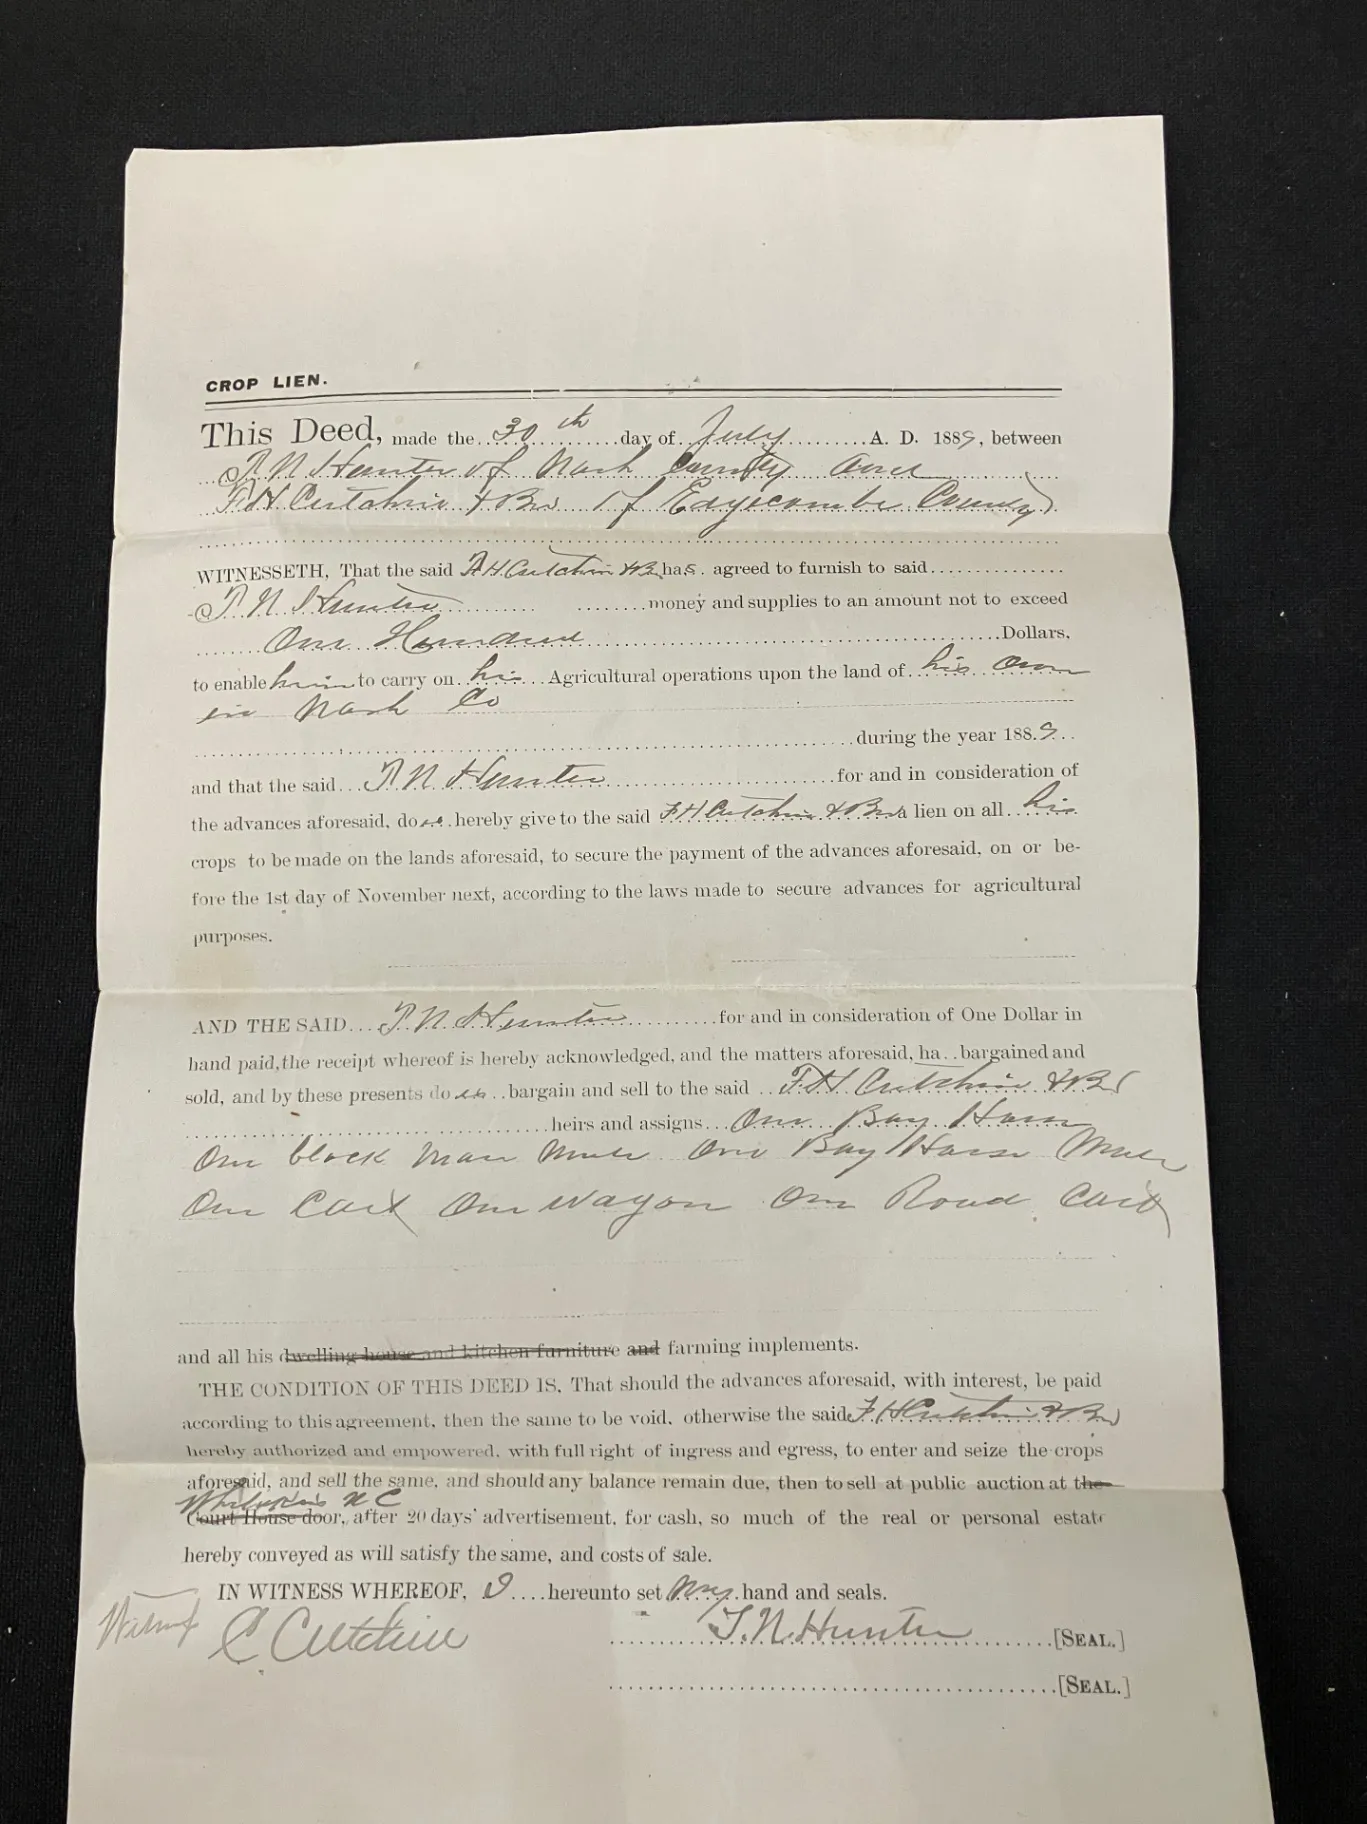 CROP LIEN.
This Deed, made the 30th day of July A. D. 1889, between
T. N. Hunter of Nash County and
F. H. Cutchin & Bro of Edgecombe County
WITNESSETH, That the said F. H. Cutchin & Bro has agreed to furnish to said
T. N. Hunter money and supplies to an amount not to exceed
One Hundred Dollars,
to enable him to carry on his Agricultural operations upon the land of his own
in Nash Co
during the year 1889
and that the said T. N. Hunter for and in consideration of
the advances aforesaid, does hereby give to the said F H Cutchin & Bro a lien on all his
crops to be made on the lands aforesaid, to secure the payment of the advances aforesaid, on or be-
fore the 1st day of November next, according to the laws made to secure advances for agricultural
purposes.
AND THE SAID T. N. Hunter for and in consideration of One Dollar in
hand paid, the receipt whereof is hereby acknowledged, and the matters aforesaid, ha bargained and
sold, and by these presents does bargain and sell to the said F. H. Cutchin & Bro
heirs and assigns One Bay Horse
One black mare mule One Bay Horse Mule
One Cart One wagon One Road Cart
and all his dwelling house and kitchen furniture and farming implements.
THE CONDITION OF THIS DEED IS, That should the advances aforesaid, with interest, be paid
according to this agreement, then the same to be void, otherwise the said F. H. Cutchin & Bro
hereby authorized and empowered, with full right of ingress and egress, to enter and seize the crops
aforesaid, and sell the same, and should any balance remain due, then to sell at public auction at the
Whitakers N C
Court House door, after 20 days' advertisement, for cash, so much of the real or personal estate
hereby conveyed as will satisfy the same, and costs of sale.
IN WITNESS WHEREOF, I hereunto set my hand and seals.
Witness C Cutchin T. N. Hunter [SEAL.]
[SEAL.]